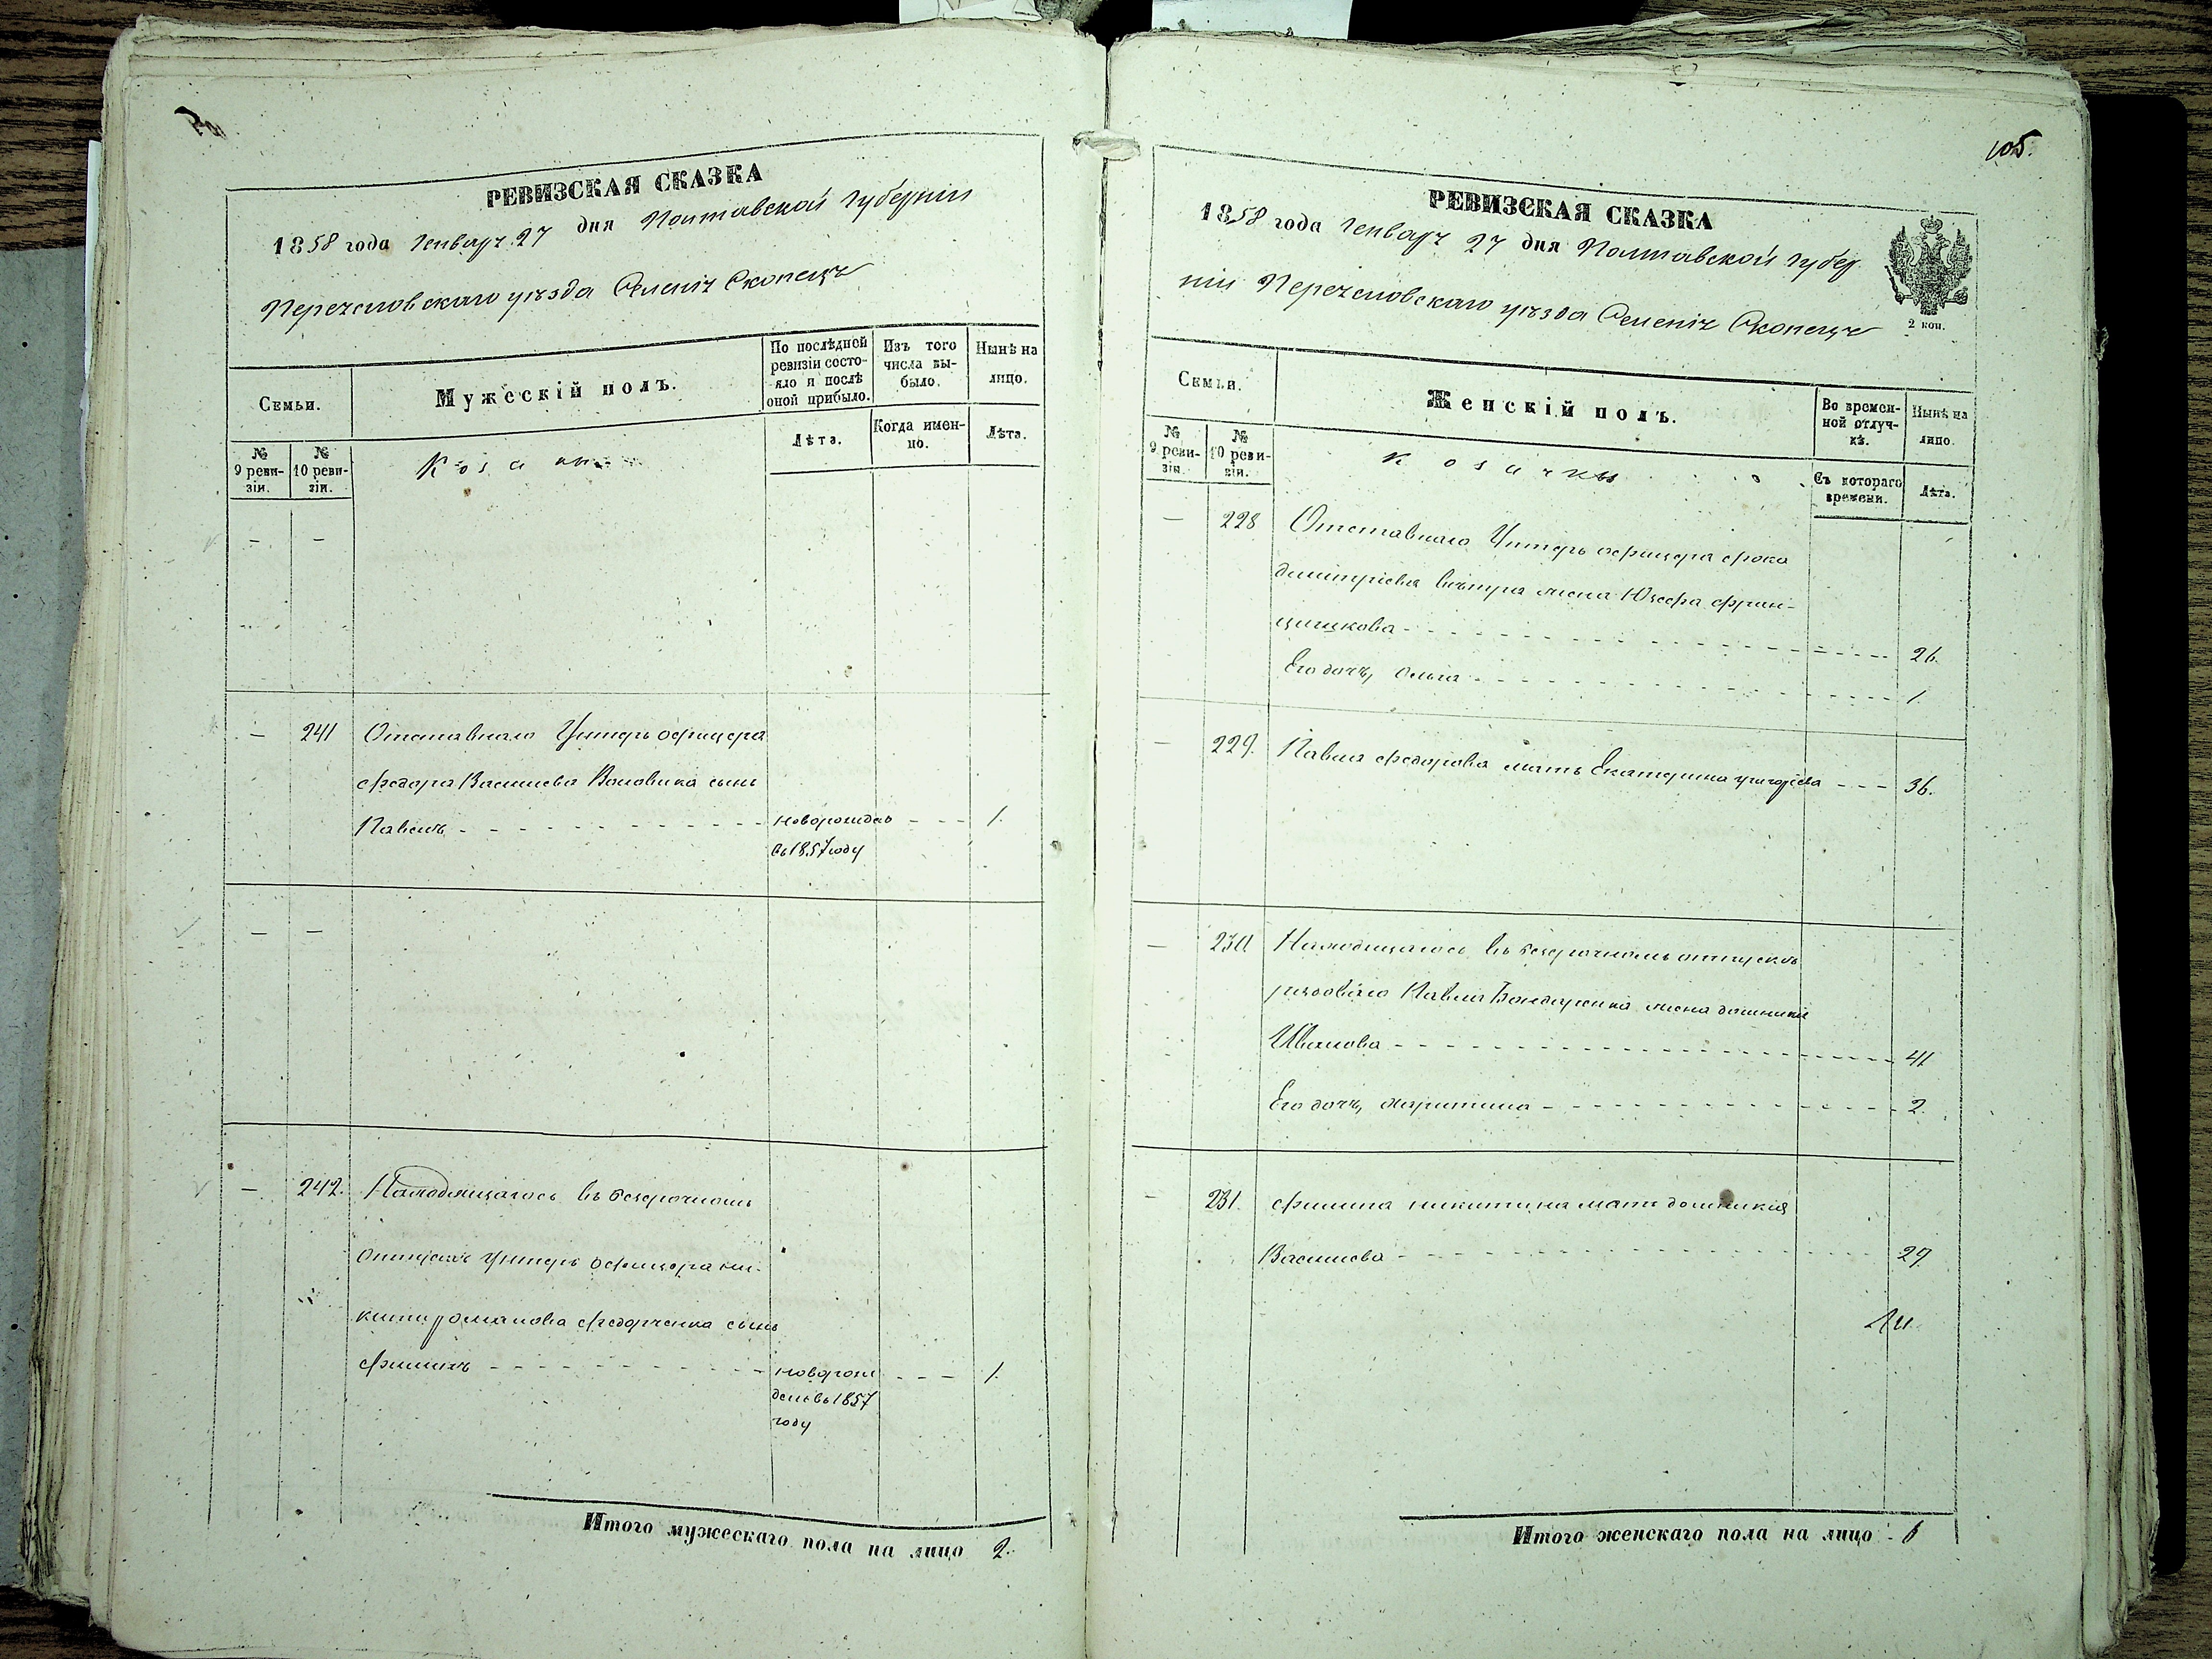 РЕВИЗСКАЯ СКАЗКА
1858 года Генваря 27 дня Полтавской Губерніи
Переяславскаго уѣзда Селенія Скопецъ
Семьи.
Мужескій полъ.
По послѣдней ревизіи состояло и послѣ оной прибыло.
Изъ того числа выбыло.
Нынѣ на лицо.
№ 9 ревизіи.
№ 10 ревизіи.
Козаки
Лѣта.
Когда именно.
Лѣта.
— —
— 241 Отставнаго Унтеръ офицера
Федора Василиева Воловика сынъ
Павелъ новорожден 1.
въ 1857 году
— —
— 242. Находящагось въ безсрочномъ
отпускѣ Унтеръ офицера Ни-
киты Романова Федорченка сынъ
Филипъ новорож 1.
денъ въ 1857
году
Итого мужескаго пола на лицо 2.
105.
РЕВИЗСКАЯ СКАЗКА
1858 года Генваря 27 дня Полтавской Губер
ніи Переяславскаго уѣзда Селенія Скопецъ
2 коп.
Семьи.
Женскій полъ.
Во временной отлучкѣ.
Нынѣ на лицо.
№ 9 ревизіи.
№ 10 ревизіи.
Козачки
Съ котораго времени.
Лѣта.
— 228 Отставнаго Унтеръ офицера
Димитріева жена Юзефа Фран-
цишкова 26.
Его дочь, Ольга 1.
— 229. Павла Федорова мать Екатерина Григорьева 36.
— 230 Находящагось въ безсрочномъ отпускѣ
рядоваго Павла Бондаренка жена Домникия
Иванова 41
Его дочь, Харитина 2.
— 231. Филипа Никитина мать Домникия
Василиева 29.
Итого женскаго пола на лицо 6